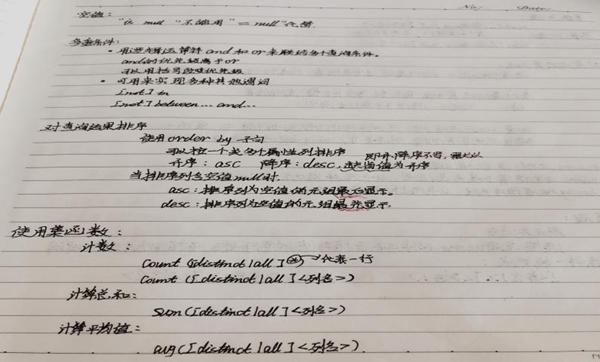 No.
Date
空值：
"is null" 不能用 "= null" 代替
多重条件：
· 用逻辑运算符 and 和 or 来联结多个查询条件。
and的优先级高于or
可以用括号改变优先级
· 可用来实现多种其他谓词
[not] in
[not] between... and...
对查询结果排序
使用order by 子句
可以按一个或多个属性列排序
升序：asc 降序：desc，缺省值为升序
当排序列含空值null时
asc：排序列为空值的元组最后显示。
desc：排序列为空值的元组最先显示。
使用聚函数：
计数：
Count ([distinct|all] *) → 代表一行
Count ([distinct|all] <列名>)
计算总和：
sum ([distinct|all] <列名>)
计算平均值：
avg ([distinct|all] <列名>)